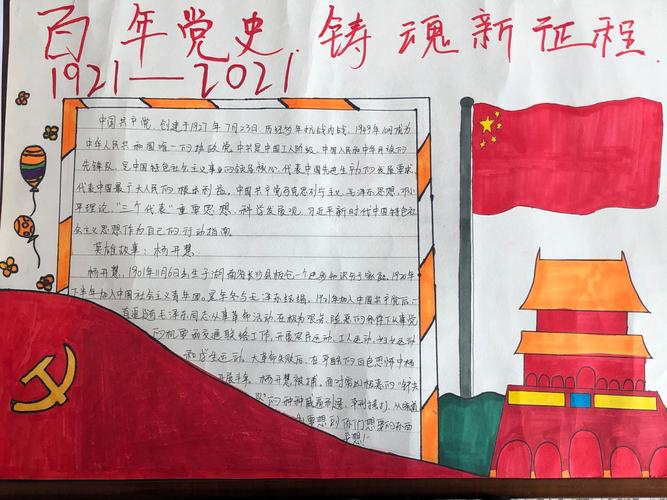 百年党史 铸魂新征程
1921—2021
中国共产党 创建于1927年7月23日 历经 年抗战内战, 1949年 成为
中华人民共和国唯一的执政党, 中共是中国工人阶级, 中国人民和中华民族的
先锋队, 是中国特色社会主义事业的领导核心, 代表中国先进生产力的发展要求,
代表中国最广大人民的根本利益, 中国共产党马克思列宁主义, 毛泽东思想, 邓小
平理论, "三个代表"重要思想, 科学发展观, 习近平新时代中国特色社
会主义思想作为自己的行动指南
英雄故事: 杨开慧
杨开慧, 1901年11月6日出生于湖南省长沙县板仓一个进步知识分子家庭, 1920年
下半年加入中国社会主义青年团, 是年冬与毛泽东结婚, 1921年加入中国共产党后,一
直追随毛泽东同志从事革命活动, 在极为艰苦、 的条件下从事党
的机要和交通联络工作, 开展农民运动, 工人运动, 妇女运动
和学生运动, 大革命失败后, 在 的白色恐怖中
开展斗争 杨开慧被捕, 面对
的种种威逼利诱, 严刑拷打,
要想 你们想要的东西